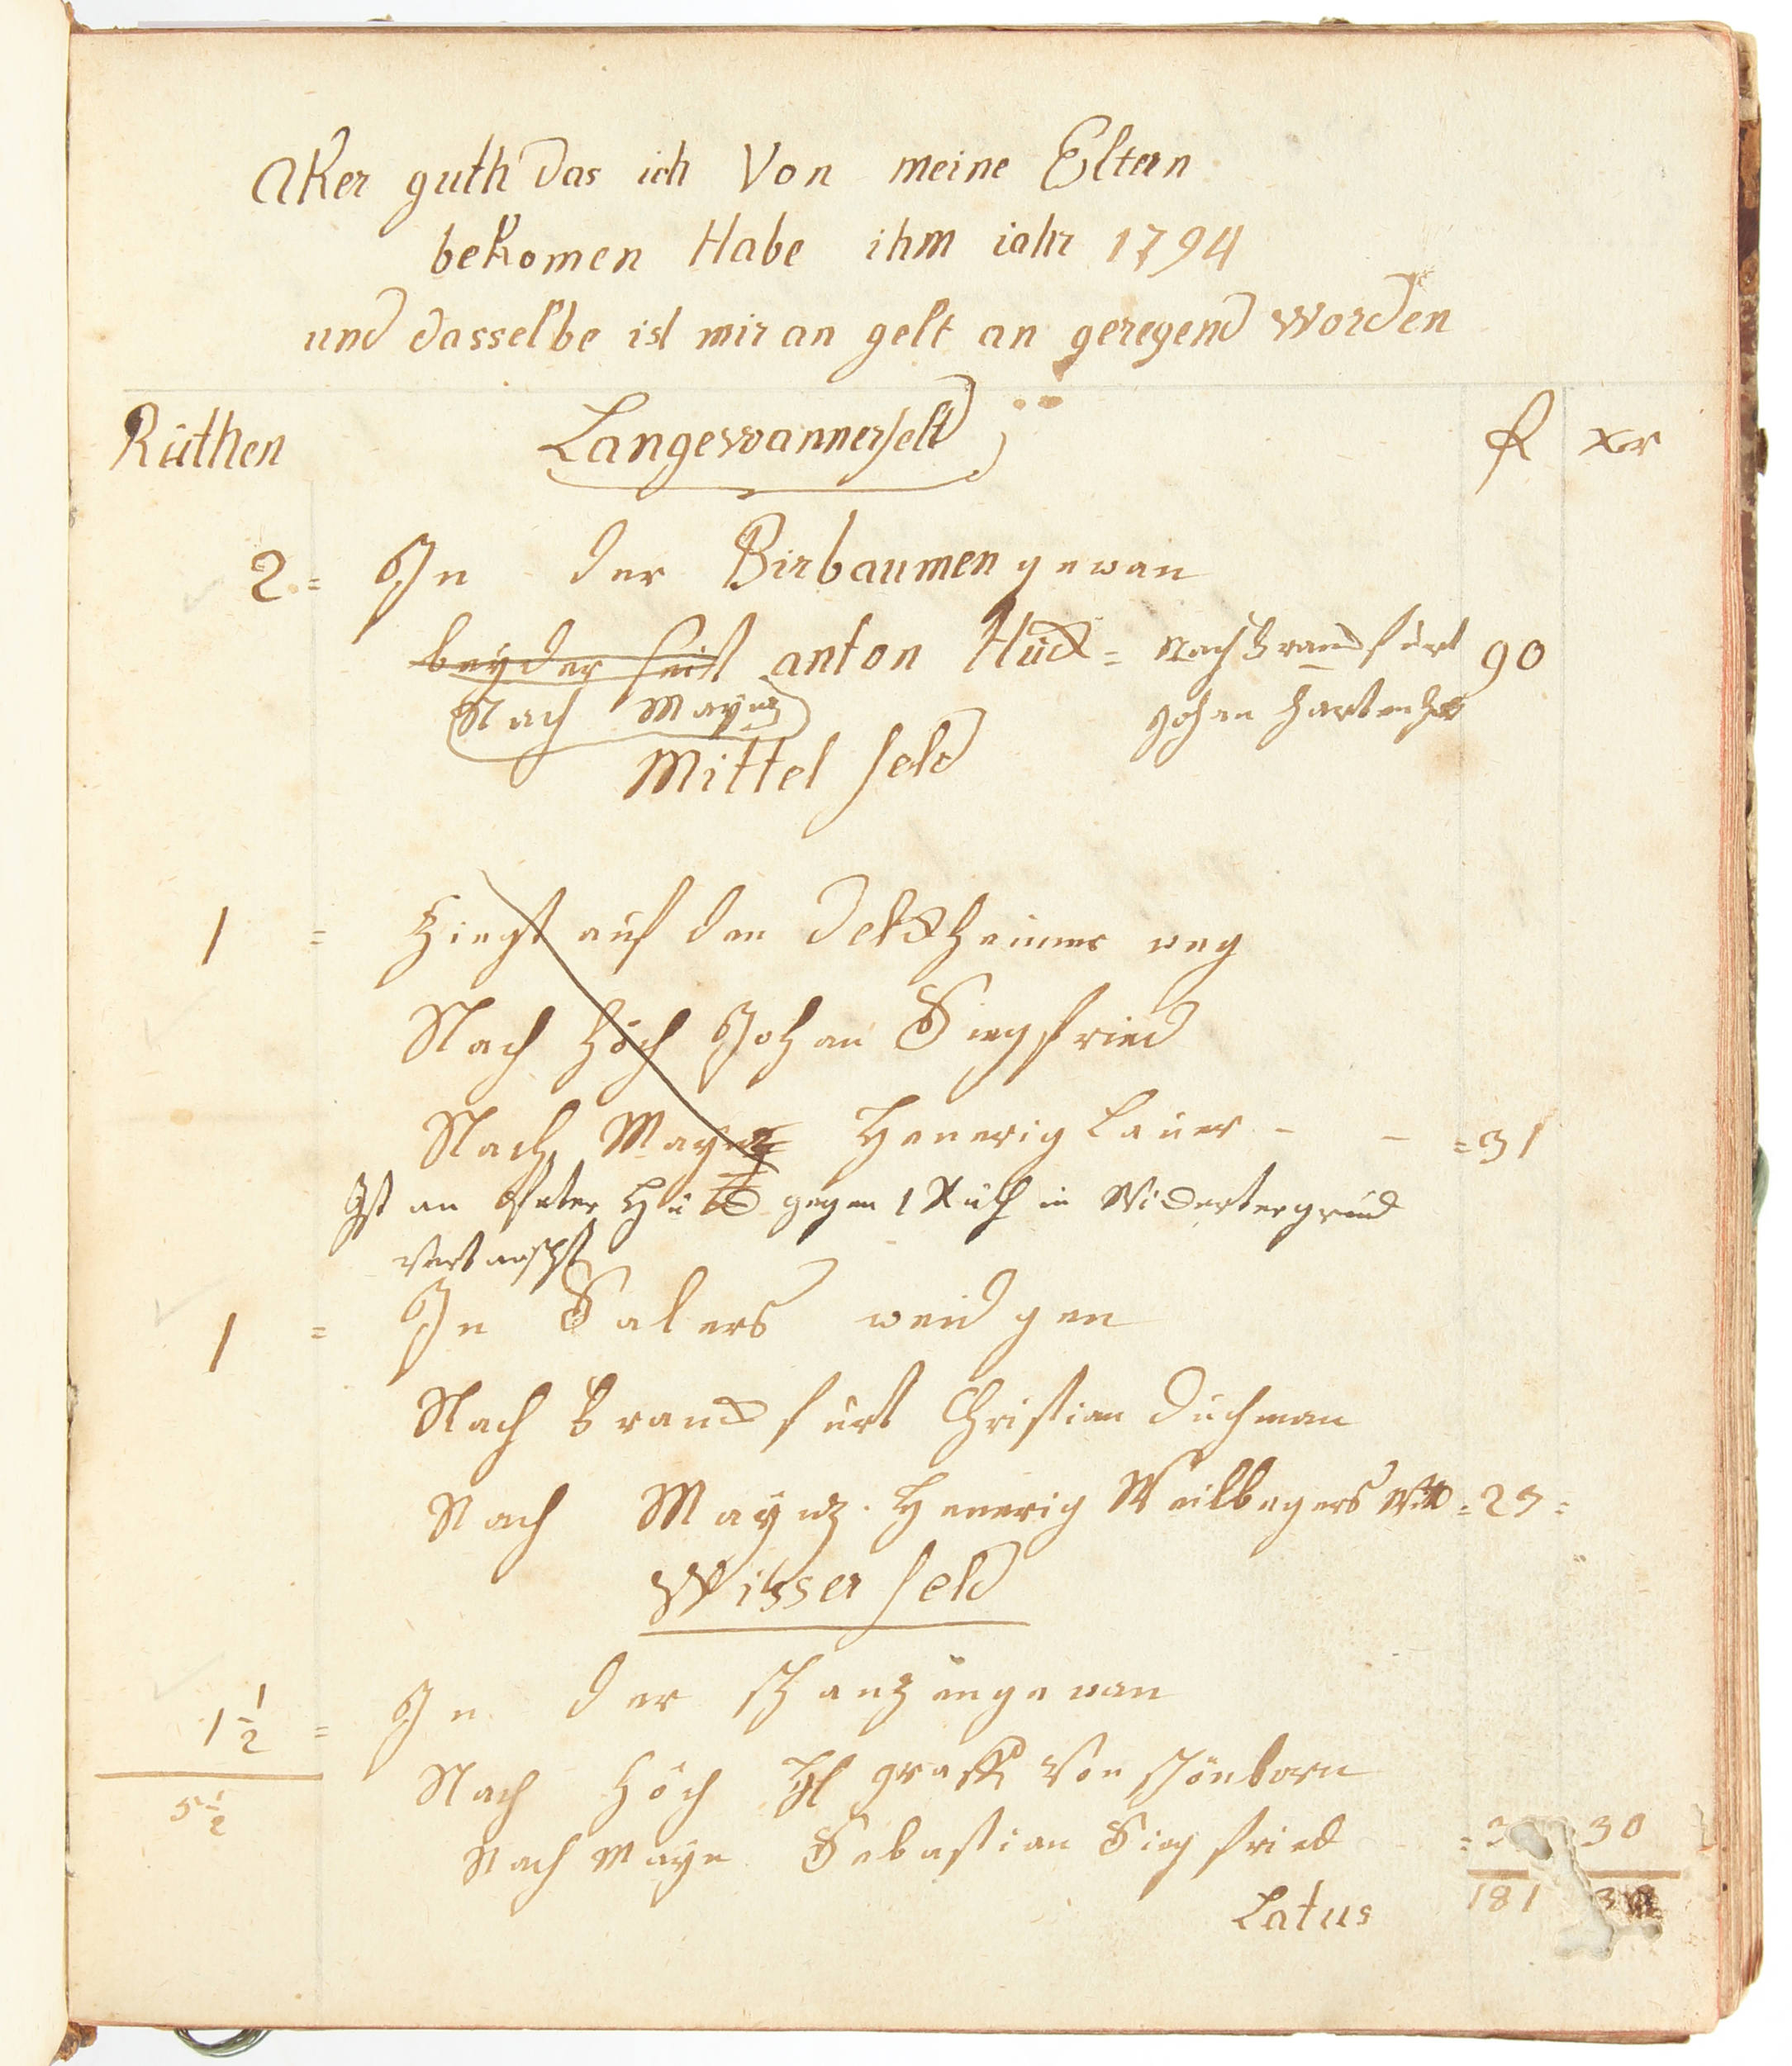 Aker guth das ich Von meine Eltern
bekomen Habe ihm iahr 1794
und dasselbe ist mir an gelt an geregend worden
Rüthen Langewannerfelt f xr
2 = In der Birbaumen gewan
beyder seist anton Huck = Nach Franckfurt 90
Nach Maynz Johan
Mittel feld
1 = Ziegt auf den weg
Nach Höch Johan Siegfried
Nach Maynz Henerig Lauer - - = 31
Ist an Peter Huck gegen 1 Ruth in Widertergrund
Vertauscht
1 = In Salers weidgen
Nach Franckfurt Christian Duchman
Nach Maynz. Henerig Weilbegers Witt = 25 =
Wisser feld
1 1/2 = In der gewan
Nach Höch Hl graff Von schönborn
5 1/2
Nach Mayn Sebastian Siegfried = 3 30
Latus 181